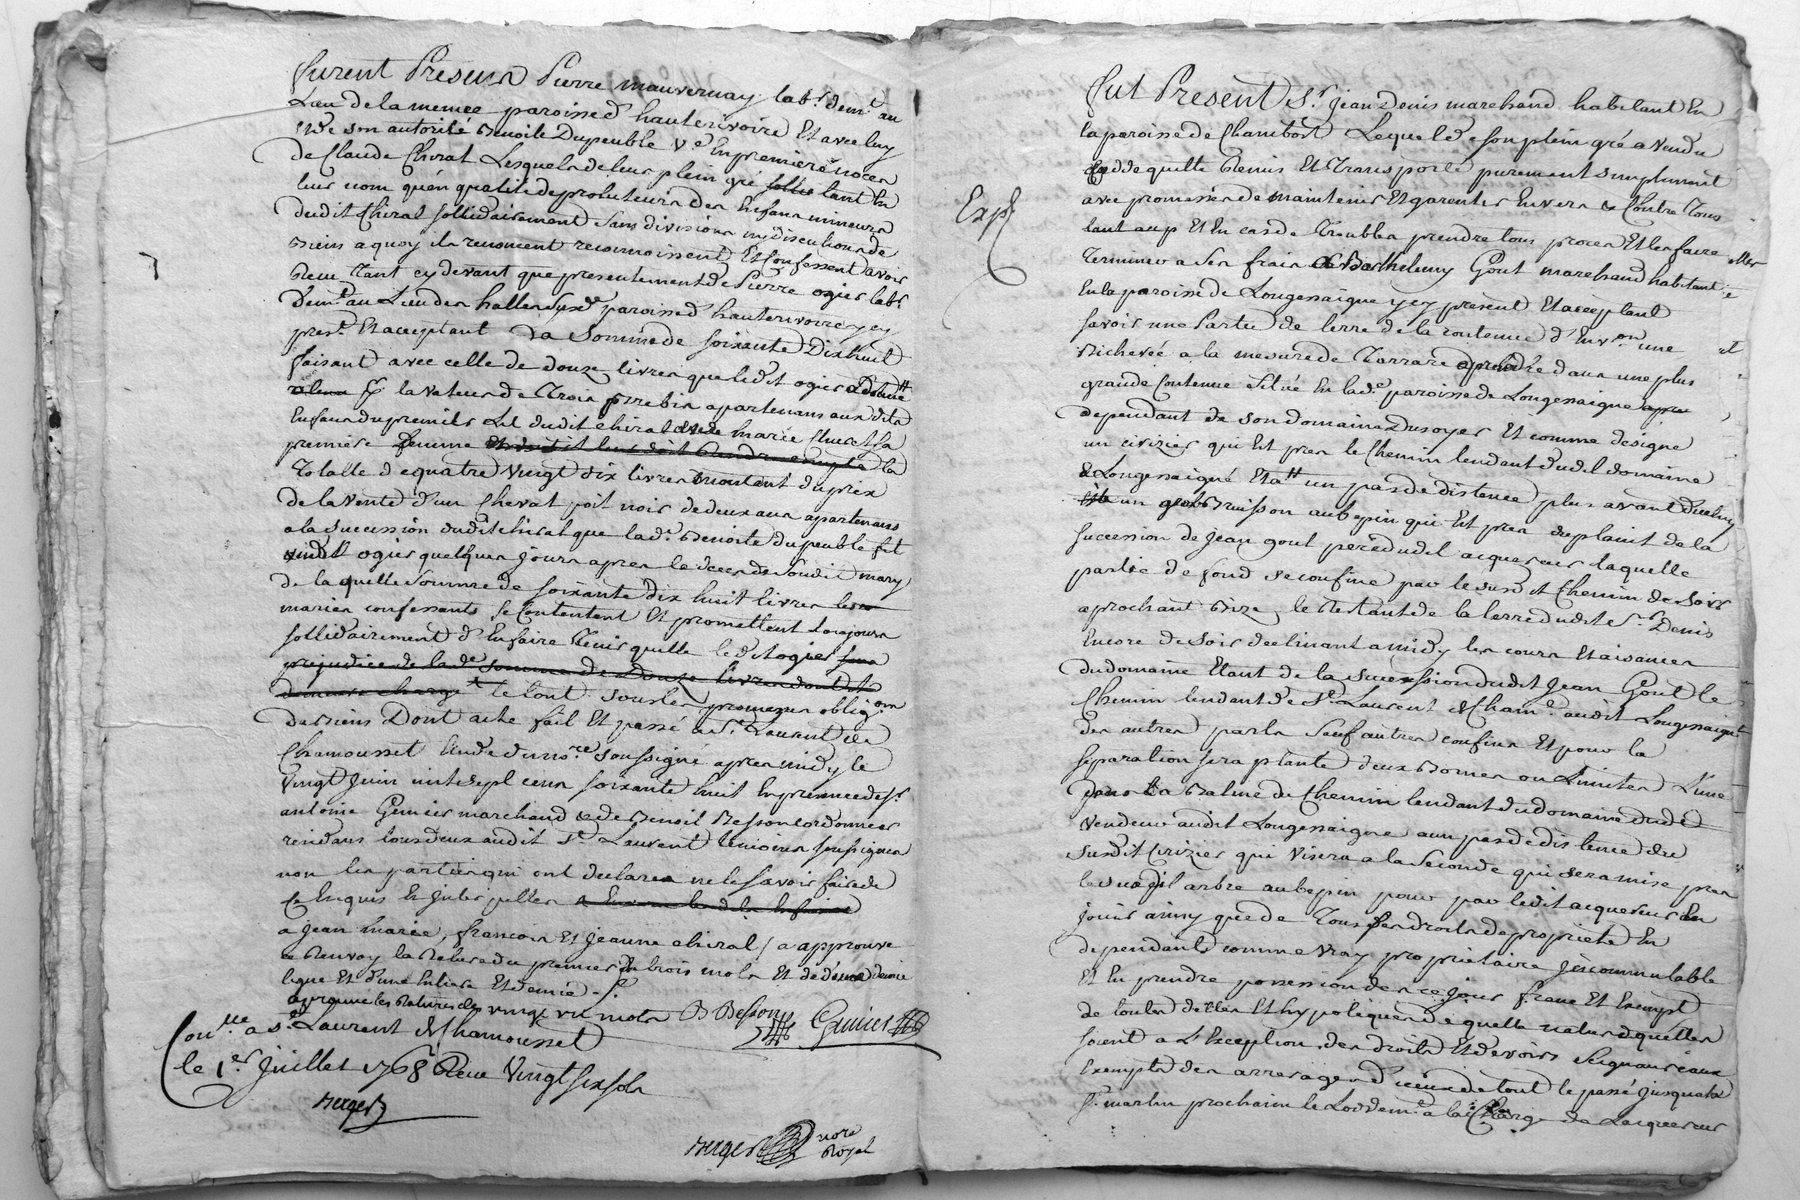 furent Presens Pierre mauvernay lab.r dem.t au
Lieu de la memee paroisse d'hauterivoire Et avec luy
de son autorité Benoite Dupeuble v.e En premiere noces
de Claude Chirat Lesquels de leur plein gré tant En
leur nom qu'en qualité de protuteurs des Enfans mineurs
dudit Chirat sollidairement sans division ny discution de
Biens a quoy ils renoncent reconnoissent Et Confessent avoir
Receu Tant cy devant que presentement de Pierre ogier lab.r
dem.t au Lieu des halles paroisse d'hauterivoire y cy
pres.t Et acceptant La Somme de soixante Dixhuit
faisant avec celle de douze livres que ledit ogier a donné
la valeur de Trois brebis apartenans aux dits
Enfans du premier Lit dudit chirat et de marie Cluset sa
premiere femme la
Totalle de quatre vingt dix livres montant du prix
de la vente d'un Cheval poil noir de deux ans apartenans
a la sucession dudit chirat que lad.e Benoite dupeuble fit
audit ogier quelques jours apres le deces de Soudit mary
de la quelle Somme de soixante dix huit livres les
mariés confessants se Contentent Et promettent toujours
sollidairement d'En faire Tenir quitte ledit ogier sans
prejudice de lad.e somme de Douze livres dont il
demeure chargé le tout sous les promesses oblig.on
de Biens Dont acte fait Et passé a S.t Laurent de
Chamousset Etude du no.re soussigné apres midy le
vingt Juin mil sept cens soixante huit En presence de s.r
antoine Grimier marchand & de Benoit Besson cordonnier
residans tous deux audit S.t Laurent temoins soussignés
non les parties qui ont declarés ne le savoir faire de
ce Enquis Et Interpellés
a jean marie, francois Et jeanne chirat / a approuvé
ce Renvoy la Rature du premier de trois mots Et de demie
ligne Et d'une Entiere Et demie
aprouvé les Ratures de vingt un mots B Besson Grimier
Con.lle a S.t Laurent de Chamousset
le 1.er Juillet 1768 Receu Vingt six sols
Berger
Berger nore
Royal
Exp.é
Fut Present S.r jean Denis marchand habitant En
la paroisse de Chambost Lequel de son plein gré a vendu
Cedde quitte Remis Et Transporté purement simplement
avec promesse de maintenir Et garentir Envers & Contre Tous
tant au p Et En cas de Trouble prendre tous proces Et les faire
Terminer a ses frais a Barthelemy Gout marchand habitant
En la paroisse de Longessaigne y cy present Et acceptant
savoir une Partie de terre de la contenue d'Env.on une
Bicherée a la mesure de Tarrare a prendre dans une plus
grande Contenue située En lad.e paroisse de Longessaigne
dependant de son domaine Dusoyer Et comme designe
un cerizier qui Est pres le Chemin tendant dudit domaine
a Longessaigne Et a un pas de distence plus avant d'icelluy
un gros Buisson aubepin qui Est pres du plant de la
succession de jean gout pere dudit acquereur laquelle
partie de fond se confine par le susdit Chemin de soir
aprochant Bize, le Restant de la terre dudit S.r Denis
Encore de soir declinant a midy les cours Et aisances
du domaine Etant de la Succession dudit Jean Gout le
Chemin tendant de S.t Laurent de Cham.t audit Longessaigne
des autres parts Sauf autres confins Et pour la
separation sera planté deux Bornes ou Limites L'une
sous la Balme du Chemin tendant du domaine dudit
vendeur audit Longessaigne a un pas de distence du
Susdit Cerizier qui visera a la Seconde qui sera mise pres
le susdit arbre aubepin pour par ledit acquereur En
jouir ainsy que de Tous ses droits de proprieté En
dependants comme vray proprietaire Jncommutable
Et En prendre possession des ce jour franc Et Exempt
de toutes dettes Et hypoteques de quelle nature qu'elles
soient a L'Exception des droits Et devoirs Seigneuriaux
Exempts des arrerages d'iceux de tout le passé jusqu'a la
S.t martin prochain le Lod dem.t a la Charge de Lacquereur